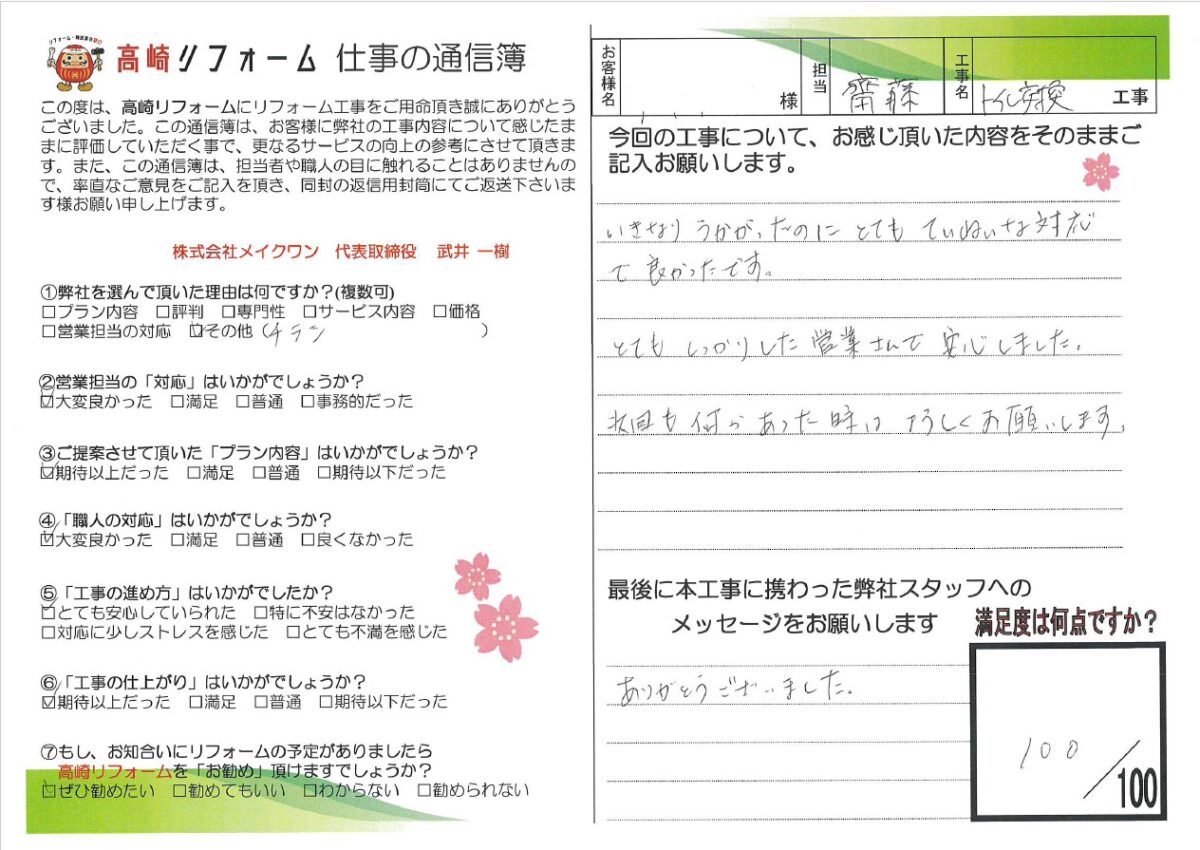 リフォーム・増改築の窓口
高崎リフォーム 仕事の通信簿
この度は、高崎リフォームにリフォーム工事をご用命頂き誠にありがとう
ございました。この通信簿は、お客様に弊社の工事内容について感じたま
まに評価していただく事で、更なるサービスの向上の参考にさせて頂きま
す。また、この通信簿は、担当者や職人の目に触れることはありませんの
で、率直なご意見をご記入を頂き、同封の返信用封筒にてご返送下さいま
す様お願い申し上げます。
株式会社メイクワン 代表取締役 武井 一樹
①弊社を選んで頂いた理由は何ですか？(複数可)
□プラン内容 □評判 □専門性 □サービス内容 □価格
□営業担当の対応 ☑その他（チラシ ）
②営業担当の「対応」はいかがでしょうか？
☑大変良かった □満足 □普通 □事務的だった
③ご提案させて頂いた「プラン内容」はいかがでしょうか？
☑期待以上だった □満足 □普通 □期待以下だった
④「職人の対応」はいかがでしょうか？
☑大変良かった □満足 □普通 □良くなかった
⑤「工事の進め方」はいかがでしたか？
☑とても安心していられた □特に不安はなかった
□対応に少しストレスを感じた □とても不満を感じた
⑥「工事の仕上がり」はいかがでしょうか？
☑期待以上だった □満足 □普通 □期待以下だった
⑦もし、お知合いにリフォームの予定がありましたら
高崎リフォームを「お勧め」頂けますでしょうか？
☑ぜひ勧めたい □勧めてもいい □わからない □勧められない
お客様名 様 担当 齋藤 工事名 トイレ交換 工事
今回の工事について、お感じ頂いた内容をそのままご
記入お願いします。
いきなりうかがったのにとてもていねいな対応
で良かったです。
とてもしっかりした営業さんで安心しました。
次回も何かあった時はよろしくお願いします。
最後に本工事に携わった弊社スタッフへの
メッセージをお願いします
満足度は何点ですか？
ありがとうございました。
100／100